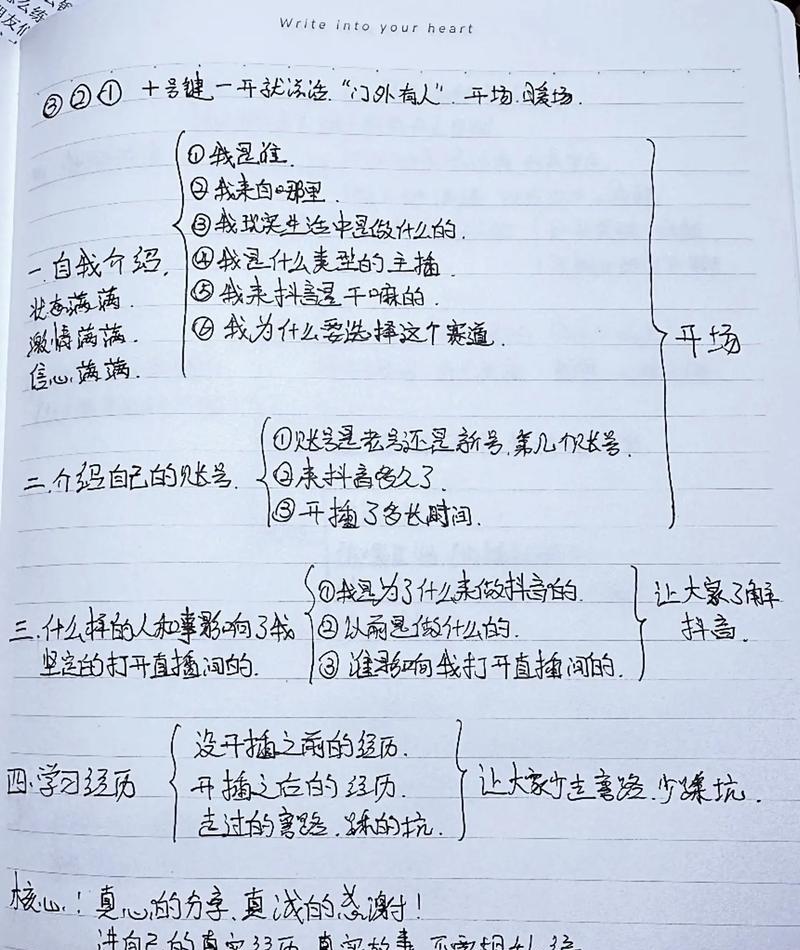 Write into your heart
③②① 十号键一开就说话."门外有人".开场.暖场.
①我是谁.
②我来自哪里.
③我现实生活中是做什么的.
一.自我介绍.
④我是什么类型的主播.
状态满满.
⑤我来抖音是干嘛的.
激情满满.
⑥我为什么要选择这个赛道.
信心满满.
开场
二.介绍自己的账号.
①账号是老号还是新号.第几个账号.
②来抖音多久了.
③开播了多长时间.
三.什么样的人和事影响了我
坚定的打开直播间的.
①我是为了什么来做抖音的.
②以前是做什么的.
③谁影响我打开直播间的.
让大家了解
抖音.
四.学习经历
没开播之前的经历.
开播之后的经历.
走过的弯路.踩的坑.
让大家少走弯路.少踩坑.
核心!真心的分享.真诚的感谢!
讲自己的真实经历.真实故事.